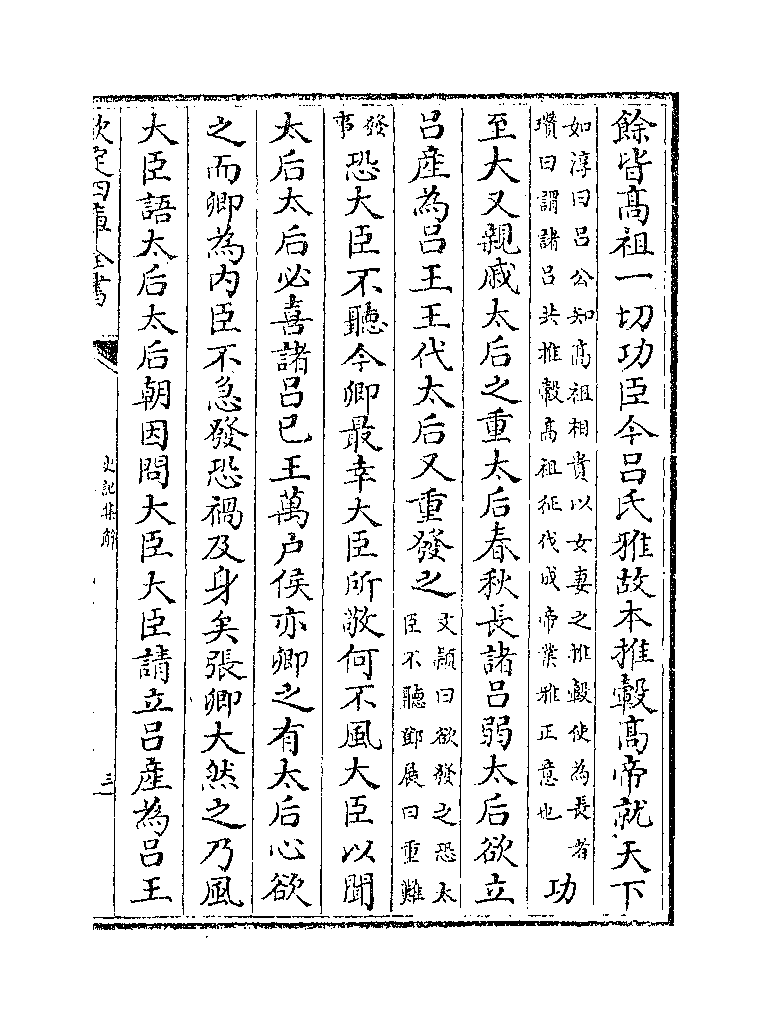 餘皆髙祖一切功臣今吕氏雅故本推轂髙帝就天下
如淳曰吕公知髙祖相貴以女妻之推轂使為長者
瓚曰謂諸吕共推轂髙祖征伐成帝業雅正意也
功
至大又親戚太后之重太后春秋長諸吕弱太后欲立
吕產為吕王王代太后又重發之
文頴曰欲發之恐太
臣不聽鄧展曰重難
發
事
恐大臣不聽今卿最幸大臣所敬何不風大臣以聞
太后太后必喜諸吕已王萬户侯亦卿之有太后心欲
之而卿為内臣不急發恐禍及身矣張卿大然之乃風
大臣語太后太后朝因問大臣大臣請立吕產為吕王
欽定四庫全書
史記集解
三